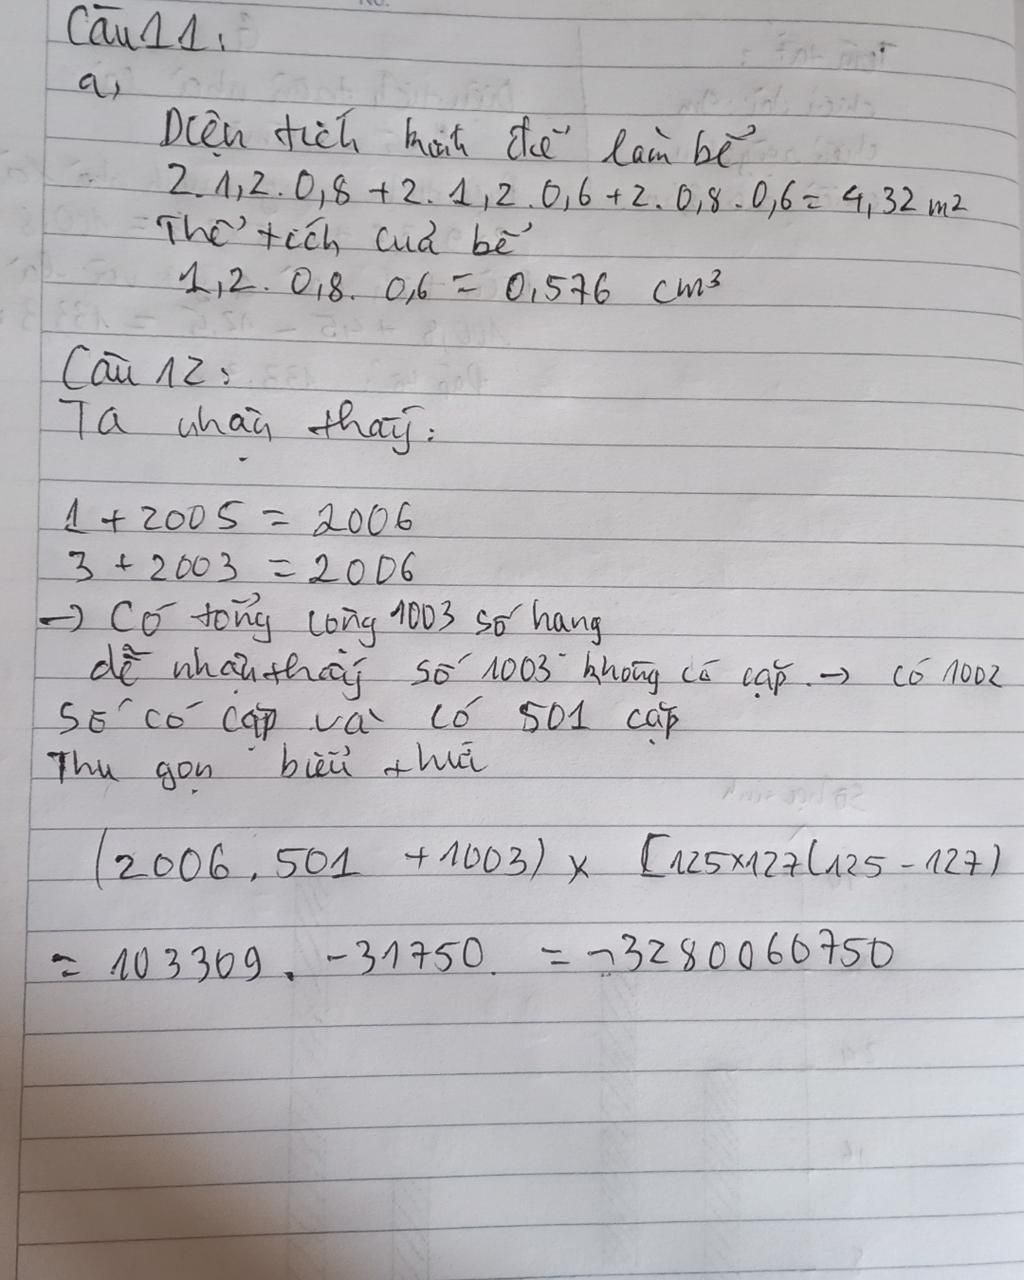 Câu 11:
a,
Diện tích kính để làm bể
2.1,2.0,8 + 2.1,2.0,6 + 2.0,8.0,6 = 4,32 m2
Thể tích của bể
1,2. 0,8. 0,6 = 0,576 cm³
Câu 12:
Ta nhận thấy:
1 + 2005 = 2006
3 + 2003 = 2006
→ Có tổng cộng 1003 số hang
dễ nhận thấy số 1003 không có cặp. → có 1002
số có cặp và có 501 cặp
Thu gọn biểu thức
(2006.501 + 1003) x [125x127(125 - 127)
= 103309. -31750. = -3280060750